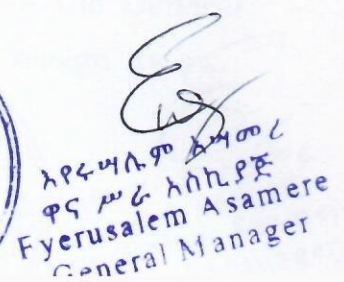 እየሩሣሌም አሣመረ
ዋና ሥራ አስኪያጅ
Eyerusalem Asamere
General Manager